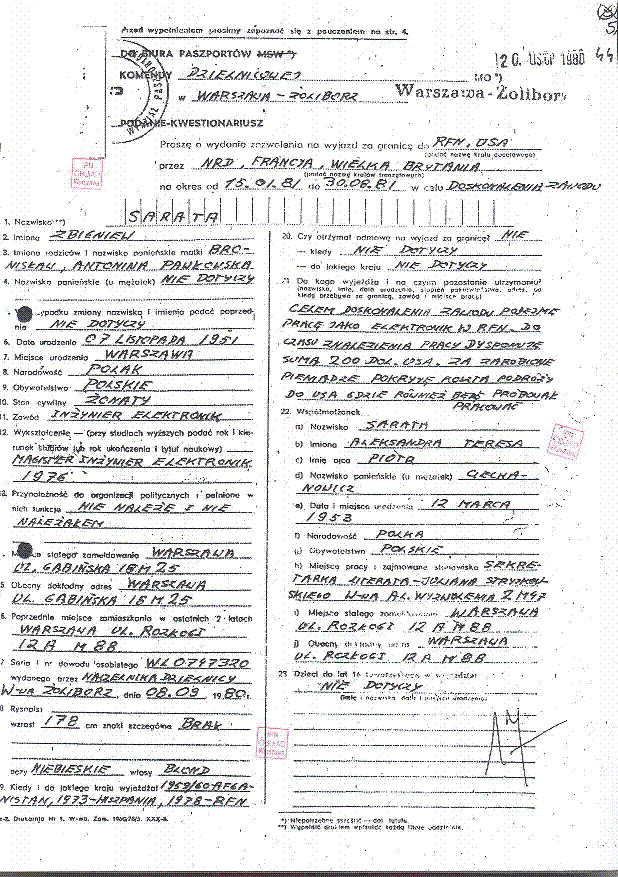 Przed wypełnieniem prosimy zapoznać się z pouczeniem na str. 4.
DO BIURA PASZPORTÓW MSW*)
KOMENDY DZIELNICOWEJ MO*)
w WARSZAWA-ŻOLIBORZ
20. 1980
Warszawa-Żoliborz
PODANIE-KWESTIONARIUSZ
Proszę o wydanie zezwolenia na wyjazd za granicę do RFN, USA
(podać nazwę kraju docelowego)
przez NRD, FRANCJA, WIELKA BRYTANIA
(podać nazwy krajów tranzytowych)
na okres od 15.01.81 do 30.08.81 w celu DOSKONALENIA ZAWODU
IPN
1. Nazwisko**) SARATA
2. Imiona ZBIGNIEW
3. Imiona rodziców i nazwisko panieńskie matki BRO-
NISŁAW, ANTONINA PAWKOWSKA
4. Nazwisko panieńskie (u mężatek) NIE DOTYCZY
wypadku zmiany nazwiska i imienia podać poprzed-
nie NIE DOTYCZY
6. Data urodzenia 07 LISTOPADA 1951
7. Miejsce urodzenia WARSZAWA
8. Narodowość POLAK
9. Obywatelstwo POLSKIE
10. Stan cywilny ŻONATY
11. Zawód INŻYNIER ELEKTRONIK
12. Wykształcenie — (przy studiach wyższych podać rok i kie-
runek studiów lub rok ukończenia i tytuł naukowy)
MAGISTER INŻYNIER ELEKTRONIK
1976
13. Przynależność do organizacji politycznych i pełnione w
nich funkcje NIE NALEŻĘ I NIE
NALEŻAŁEM
stałego zameldowania WARSZAWA
UL. GĄBIŃSKA 18 M 25
5. Obecny dokładny adres WARSZAWA
UL. GĄBIŃSKA 18 M 25
6. Poprzednie miejsce zamieszkania w ostatnich 2 latach
WARSZAWA UL. ROZŁOGI
12 A M 88
7 Seria i nr dowodu osobistego WL0797320
wydanego przez NACZELNIKA DZIELNICY
W-WA ŻOLIBORZ, dnia 08.09 1980r.
8 Rysopis:
wzrost 178 cm znaki szczególne BRAK
oczy NIEBIESKIE włosy BLOND
9. Kiedy i do jakiego kraju wyjeżdżał 1959/60-AFGA-
NISTAN, 1973-HISZPANIA, 1978-RFN
Drukarnia Nr 1, W-wa.
20. Czy otrzymał odmowę na wyjazd za granicę? NIE
— kiedy NIE DOTYCZY
— do jakiego kraju NIE DOTYCZY
21 Do kogo wyjeżdża i na czyim pozostanie utrzymaniu?
(nazwisko, imię, data urodzenia, stopień pokrewieństwa, adres, od
kiedy przebywa za granicą, zawód i miejsce pracy)
CELEM DOSKONALENIA ZAWODU PODEJMĘ
PRACĘ JAKO ELEKTRONIK W RFN. DO
CZASU ZNALEZIENIA PRACY DYSPONUJĘ
SUMĄ 200 DOL. USA. ZA ZAROBIONE
PIENIĄDZE POKRYJĘ KOSZTA PODRÓŻY
DO USA GDZIE RÓWNIEŻ BĘDĘ PRÓBOWAŁ
PRACOWAĆ
22. Współmałżonek
a) Nazwisko SARATA
b) Imiona ALEKSANDRA TERESA
c) Imię ojca PIOTR
d) Nazwisko panieńskie (u mężatek) CIECHA-
NOWICZ
e) Data i miejsce urodzenia 12 MARCA
1953
f) Narodowość POLKA
g) Obywatelstwo POLSKIE
h) Miejsce pracy i zajmowane stanowisko SEKRE-
TARKA LITERATA-JULIANA STRYJKOW-
SKIEGO W-WA AL. WYZWOLENIA 2 M 47
i) Miejsce stałego WARSZAWA
UL. ROZŁOGI 12 A M 88
j) Obecny dokładny adres WARSZAWA
UL. ROZŁOGI 12 A M 88
23 Dzieci do lat 16
NIE DOTYCZY
(imię i nazwisko, data i miejsce urodzenia)
*) Niepotrzebne skreślić
**) Wypełnić drukiem wpisując każdą literę oddzielnie.